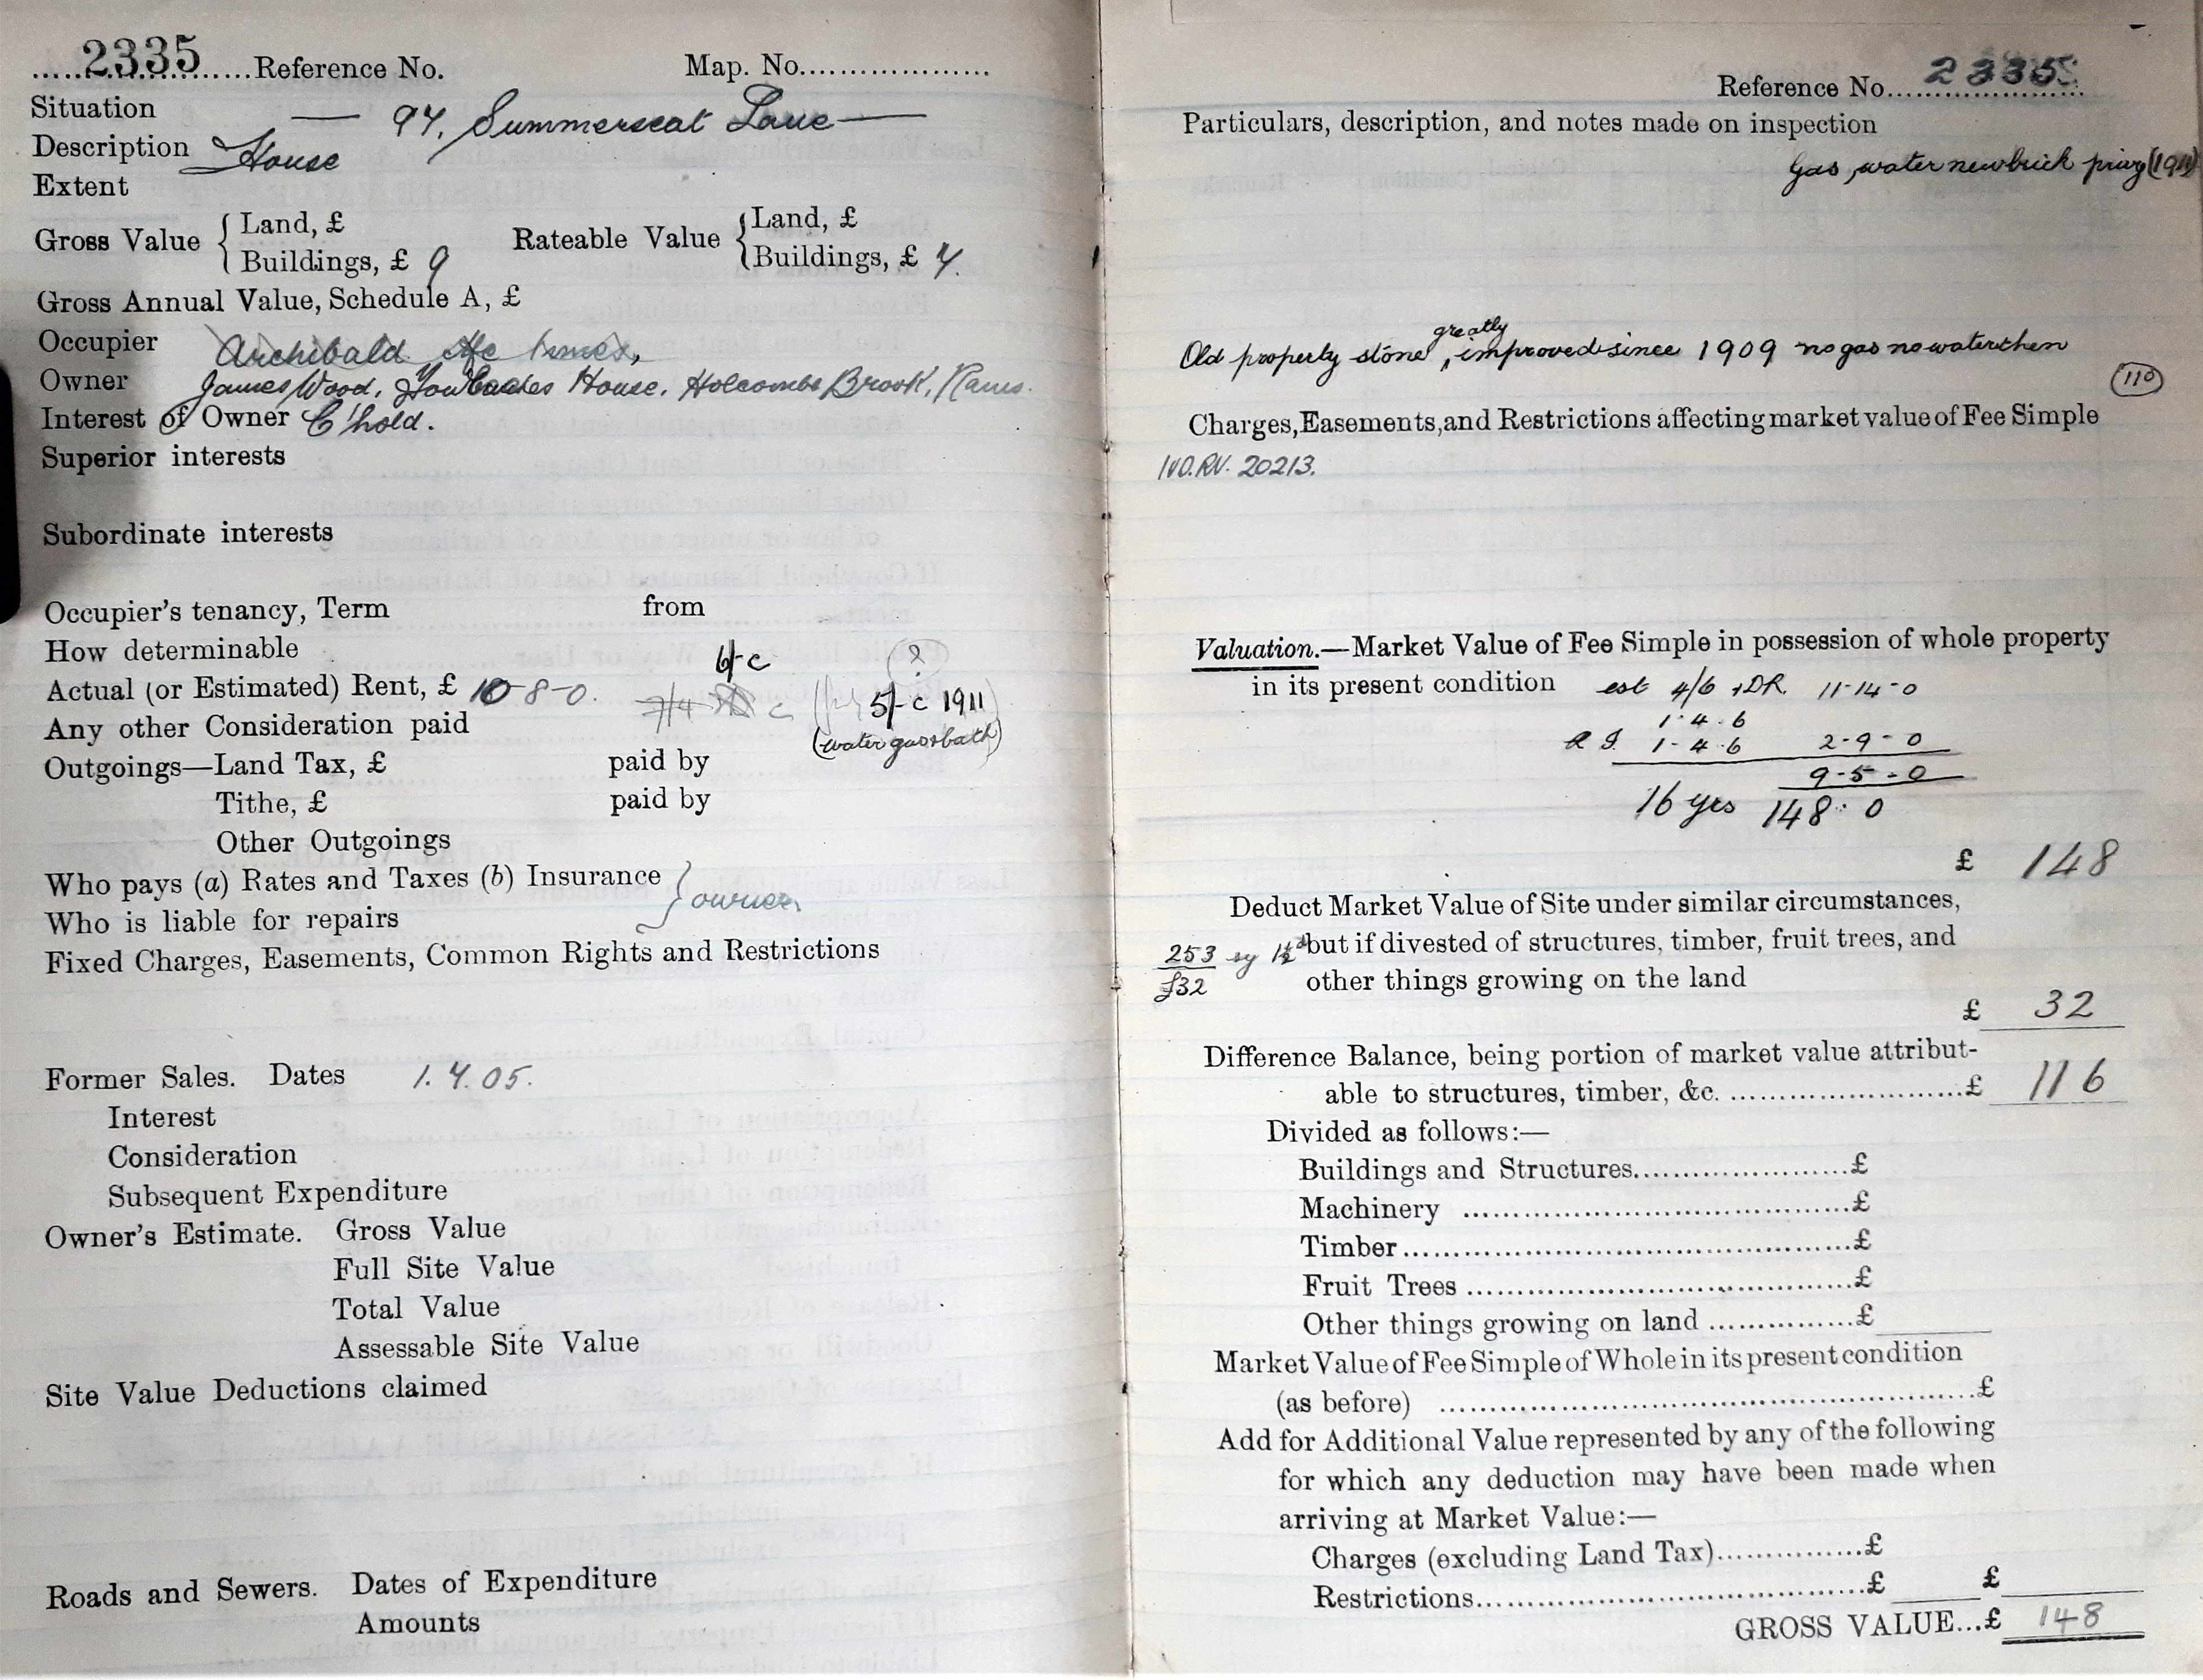 2335 Reference No. Map. No.
Situation — 94, Summerseat Lane —
Description House
Extent
Gross Value { Land, £
Buildings, £ 9
Rateable Value { Land, £
Buildings, £ 7.
Gross Annual Value, Schedule A, £
Occupier Archibald
Owner James Wood, House, Holcombe Brook, Rams.
Interest of Owner C'hold.
Superior interests
Subordinate interests
Occupier's tenancy, Term from
How determinable
6/- c ?
Actual (or Estimated) Rent, £ 10-8-0. 7/4 c 5/- c 1911
Any other Consideration paid (water gas & bath)
Outgoings—Land Tax, £ paid by
Tithe, £ paid by
Other Outgoings
Who pays (a) Rates and Taxes (b) Insurance } owner
Who is liable for repairs
Fixed Charges, Easements, Common Rights and Restrictions
Former Sales. Dates 1.4.05.
Interest
Consideration
Subsequent Expenditure
Owner's Estimate. Gross Value
Full Site Value
Total Value
Assessable Site Value
Site Value Deductions claimed
Roads and Sewers. Dates of Expenditure
Amounts
Reference No. 2335
Particulars, description, and notes made on inspection
Gas, water new brick privy (1911)
Old property stone greatly improved since 1909 no gas no water then
(110)
Charges, Easements, and Restrictions affecting market value of Fee Simple
IVO.RV. 20213.
Valuation.—Market Value of Fee Simple in possession of whole property
in its present condition est 4/6 + DR. 11-14-0
1.4.6
R I. 1-4.6 2-9-0
9-5-0
16 yrs 148: 0
£ 148
Deduct Market Value of Site under similar circumstances,
253 sy 1½ᵈ hbut if divested of structures, timber, fruit trees, and
£32 other things growing on the land
£ 32
Difference Balance, being portion of market value attribut-
able to structures, timber, &c. £ 116
Divided as follows:—
Buildings and Structures £
Machinery £
Timber £
Fruit Trees £
Other things growing on land £
Market Value of Fee Simple of Whole in its present condition
(as before) £
Add for Additional Value represented by any of the following
for which any deduction may have been made when
arriving at Market Value:—
Charges (excluding Land Tax) £
Restrictions £ £
GROSS VALUE...£ 148